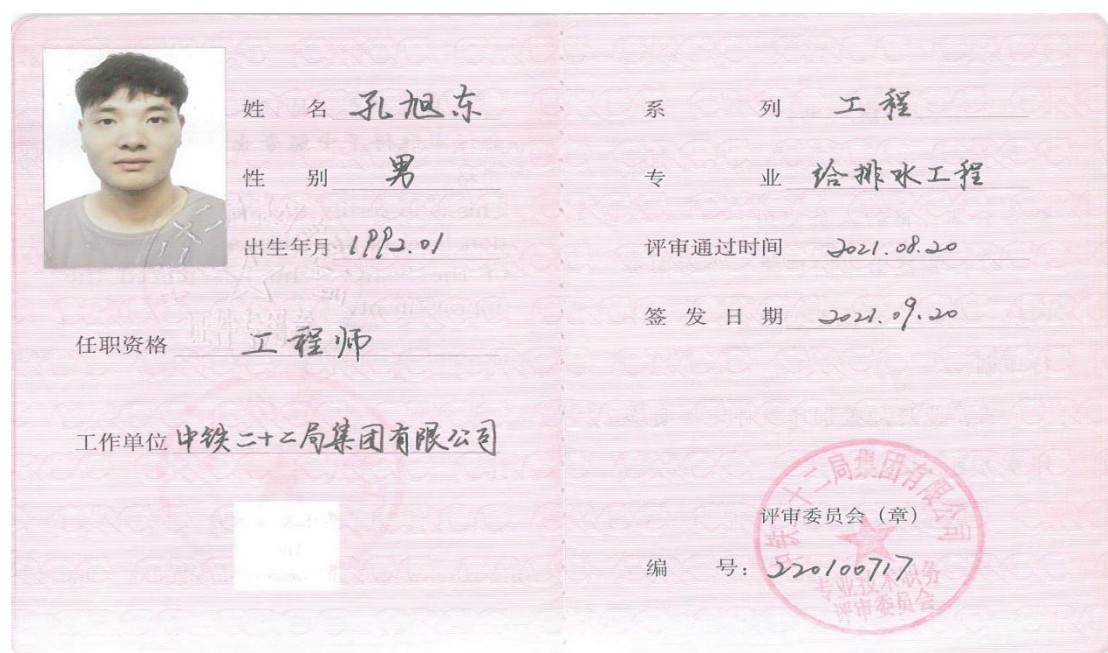 姓 名 孔旭东
性 别 男
出生年月 1992.01
任职资格 工程师
工作单位 中铁二十二局集团有限公司
系 列 工程
专 业 给排水工程
评审通过时间 2021.08.20
签发日期 2021.09.20
中铁二十二局集团有限公司
评审委员会（章）
编 号：220100717
专业技术职务
评审委员会